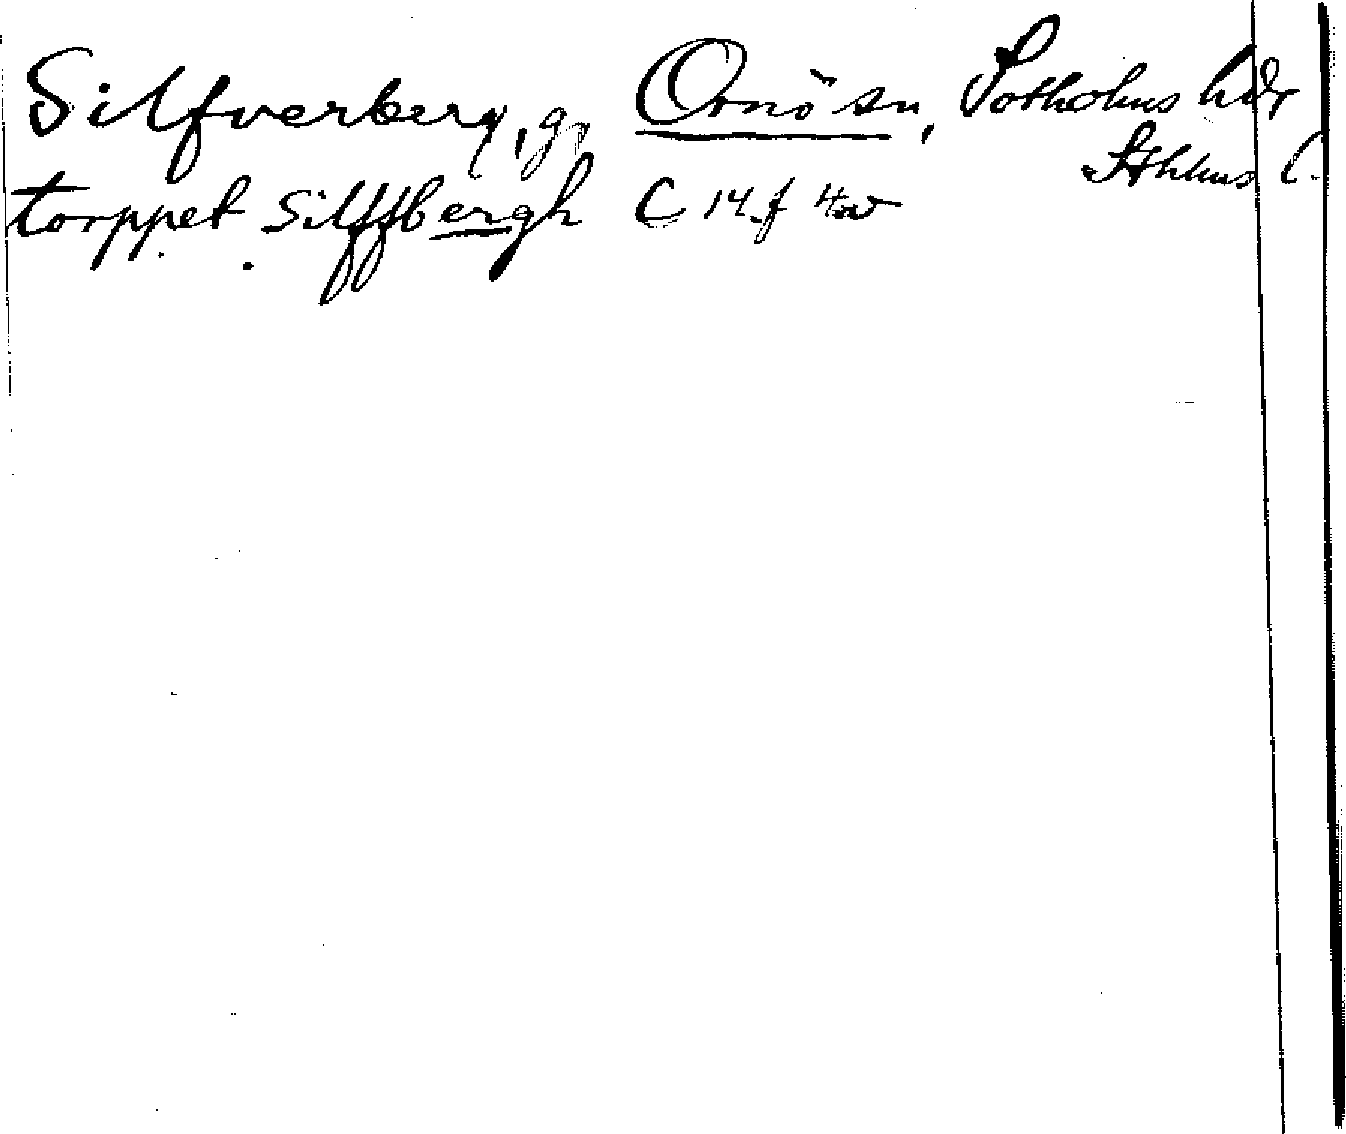 Silfverberg, g. Ornö sn, Sotholms hdr
Sthlms l.
torppet Silffbergh C 14. f 4 w